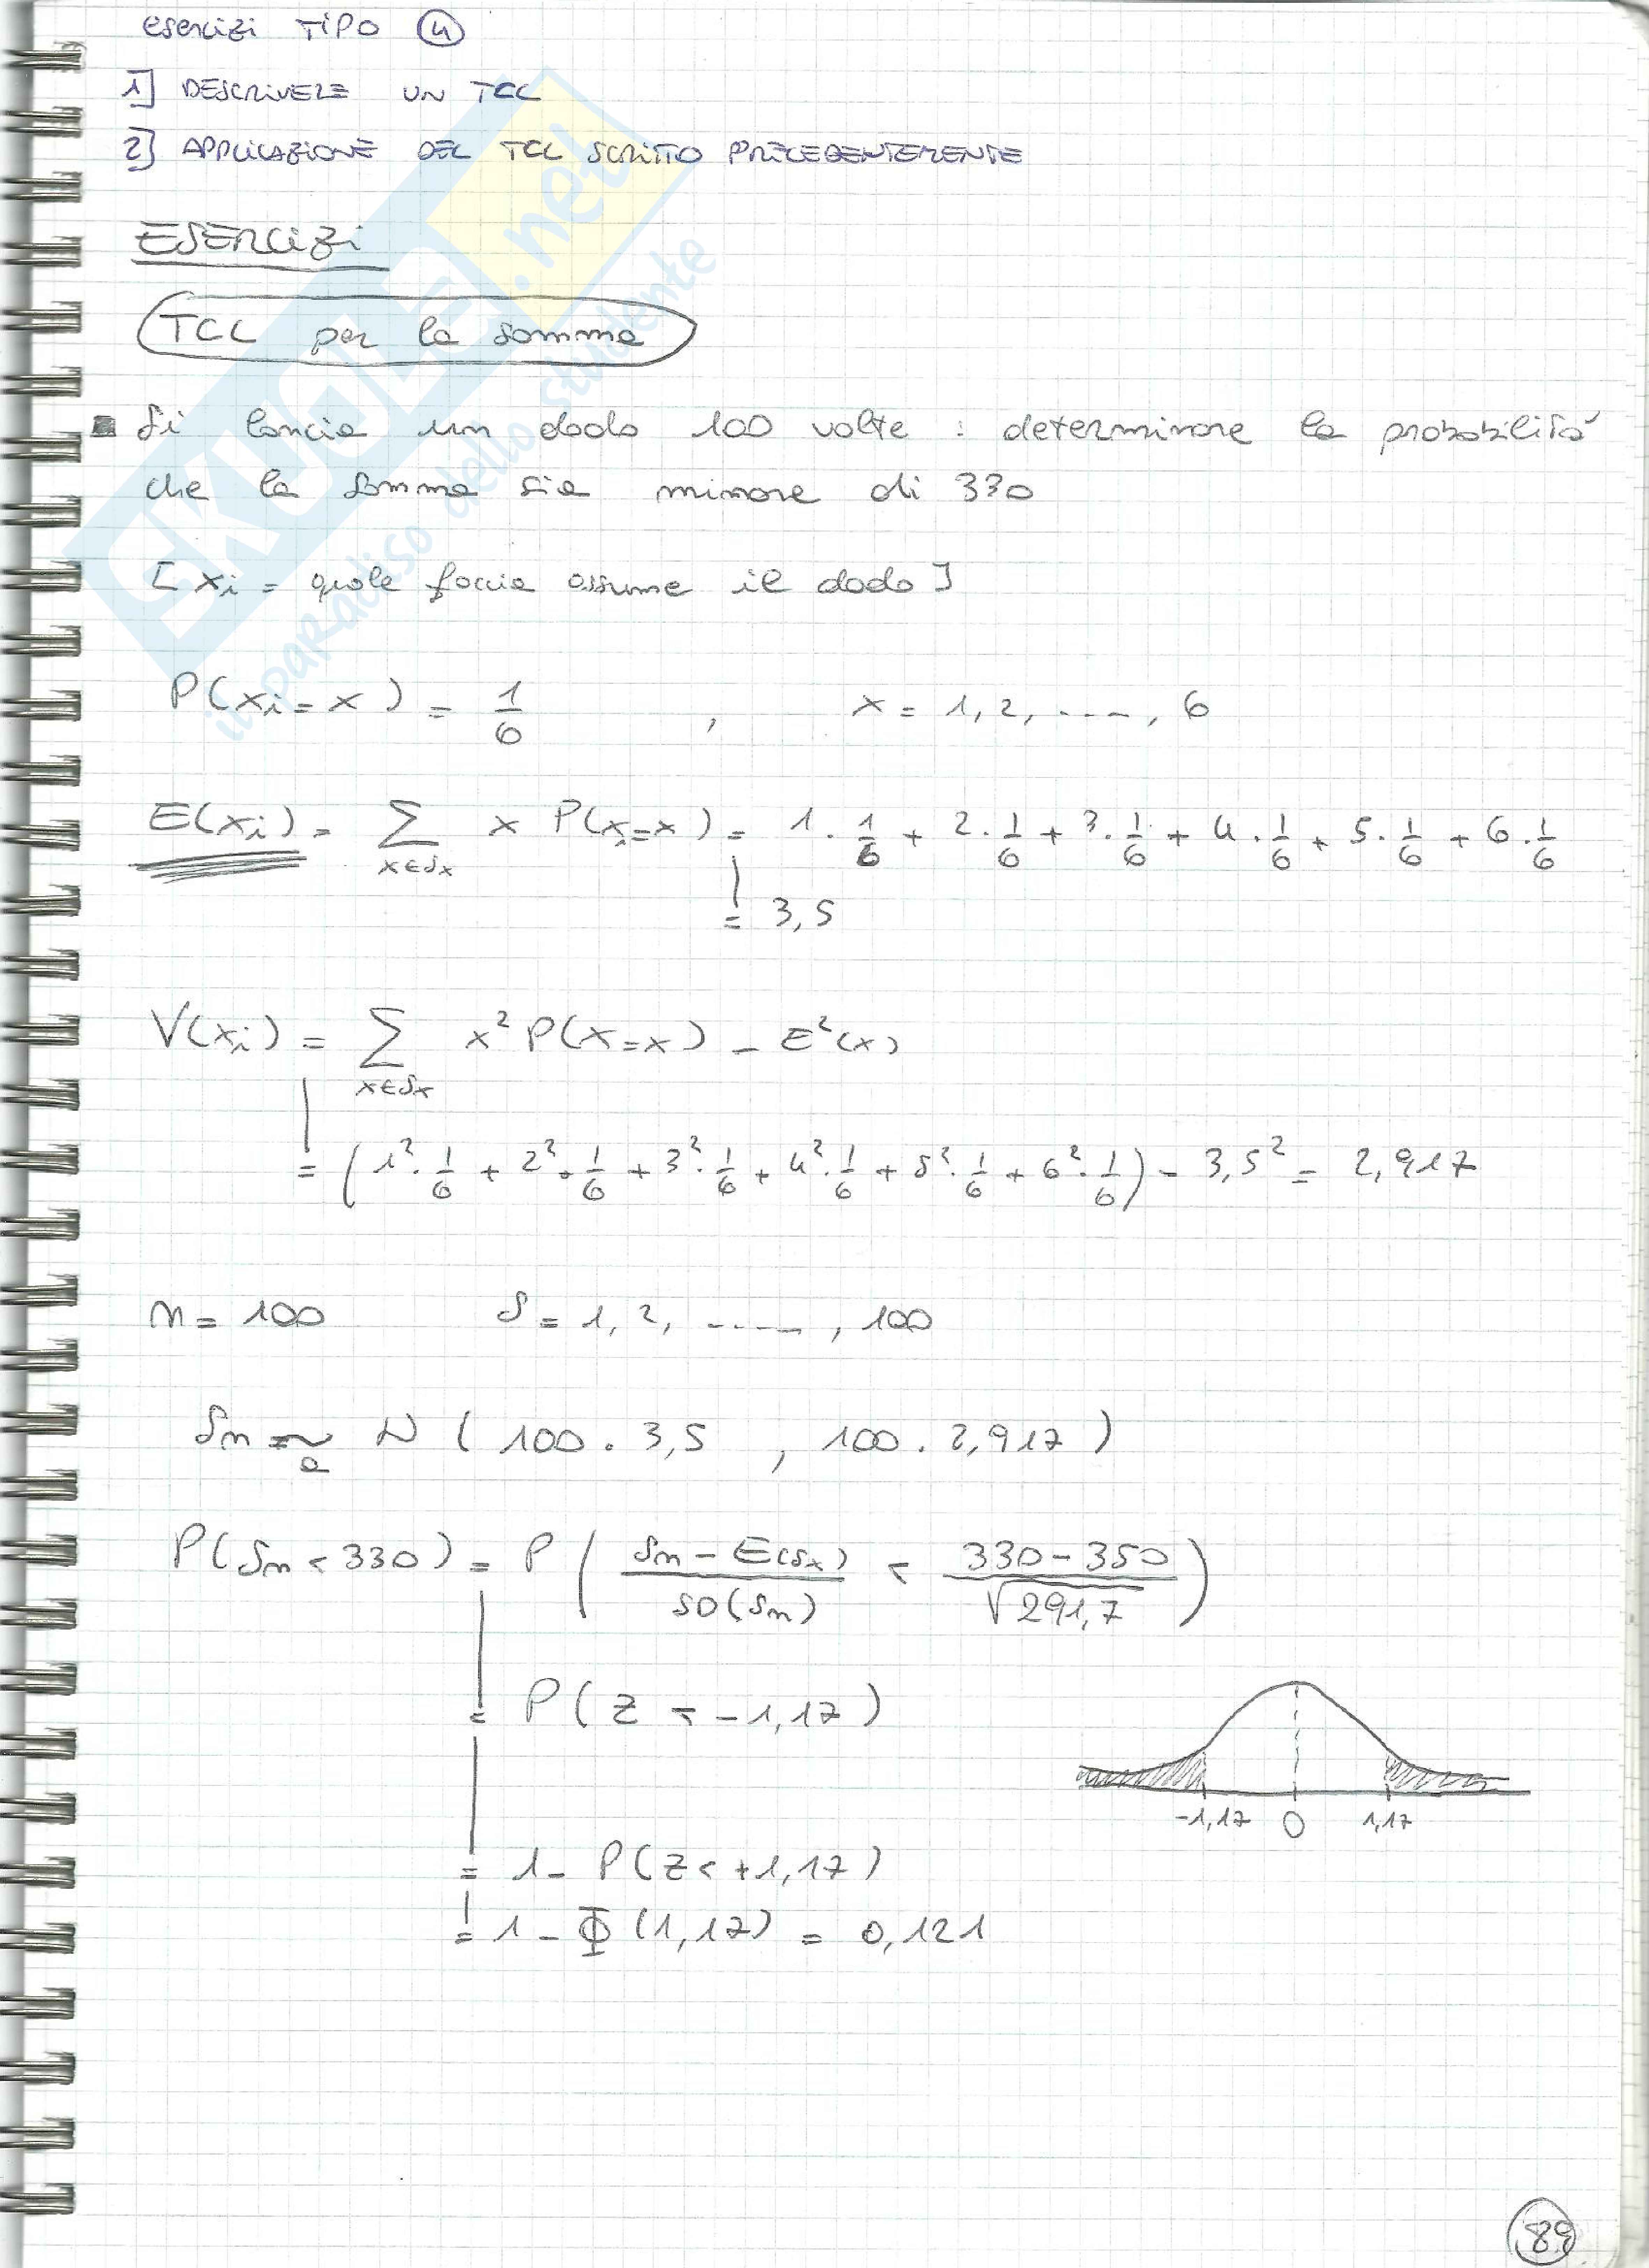 esercizi TIPO ④
1] DESCRIVERE UN TCL
2] APPLICAZIONE DEL TCL SCRITTO PRECEDENTEMENTE
ESERCIZI
TCL per la somma
▪ Si lancia un dado 100 volte : determinare la probabilità
che la somma sia minore di 330
[ Xi = quale faccia assume il dado ]
P(Xi = x) = 1/6 , x = 1, 2, ...., 6
E(Xi) = Σ x∈Sx x P(Xi=x) = 1 · 1/6 + 2 · 1/6 + 3 · 1/6 + 4 · 1/6 + 5 · 1/6 + 6 · 1/6
= 3,5
V(Xi) = Σ x∈Sx x² P(X=x) - E²(X)
= (1² · 1/6 + 2² · 1/6 + 3² · 1/6 + 4² · 1/6 + 5² · 1/6 + 6² · 1/6) - 3,5² = 2,917
n = 100 S = 1, 2, ....., 100
Sn ≈ a N ( 100 . 3,5 , 100 . 2,917 )
P(Sn < 330) = P ( Sn - E(Sx) / SD(Sn) < 330 - 350 / √291,7 )
= P(Z < -1,17)
-1,17 0 1,17
= 1 - P(Z < +1,17)
= 1 - Φ (1,17) = 0,121
89
SKUOLA.net
il paradiso dello studente